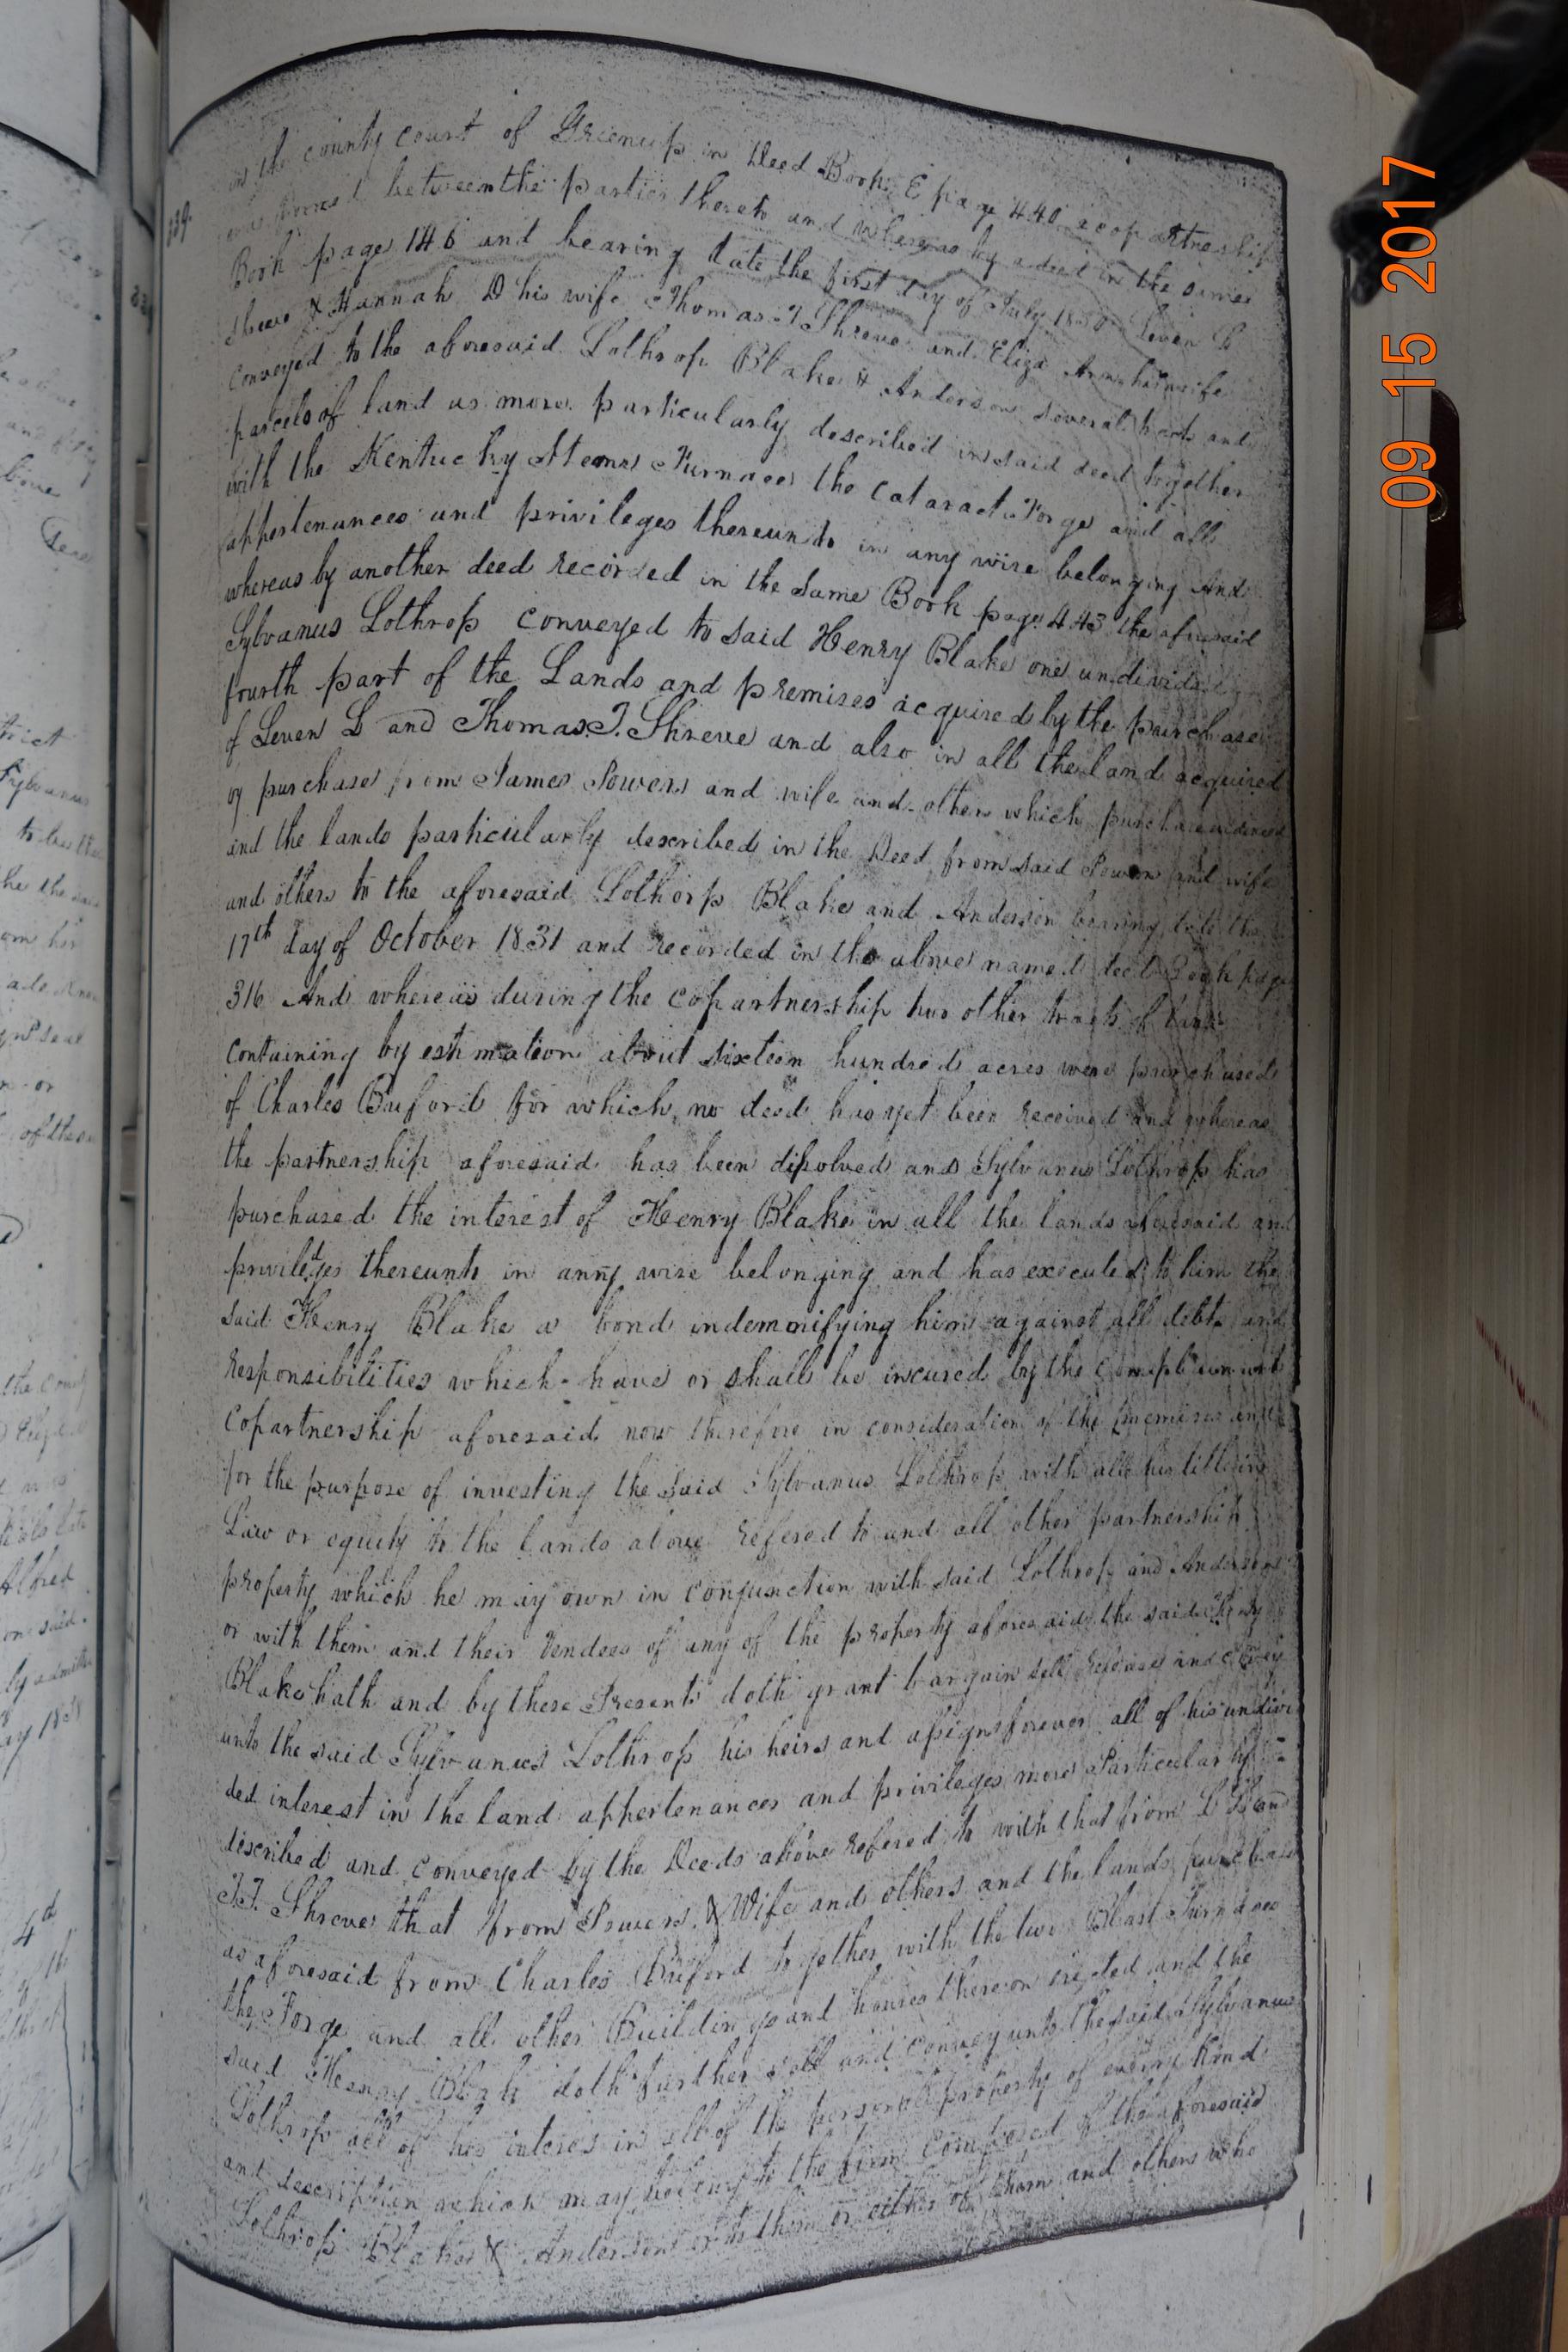 in the county court of Greenup in Deed Book E page 440 a copartnership
was formed between the parties thereto and whereas by a deed in the same
Book page 146 and bearing date the first day of July 1830 Leven L
Shreve & Hannah D his wife Thomas T Shreve and Eliza Ann his wife
conveyed to the aforesaid Lothrop Blake & Anderson several tracts and
parcels of land as more particularly described in said deed together
with the Kentucky Steam Furnace the Cataract Forge and all
appertenances and privileges thereunto in any wise belonging And
whereas by another deed recorded in the same Book page 443 the aforesaid
Sylvanus Lothrop conveyed to said Henry Blake one undivided
fourth part of the Lands and premises acquired by the purchase
of Leven L and Thomas T. Shreve and also in all the land acquired
by purchase from James Powers and wife and others which purchase
and the lands particularly described in the Deed from said Powers and wife
and others to the aforesaid Lothorp Blake and Anderson bearing date the
17th day of October 1831 and recorded in the above named deed Book page
316 And whereas during the copartnership two other tracts of land
containing by estimation about sixteen hundred acres were purchased
of Charles Buford for which no deed has yet been received and whereas
the partnership aforesaid has been dissolved and Sylvanus Lothrop has
purchased the interest of Henry Blake in all the lands aforesaid and
priviledges thereunto in anny wise belonging and has executed to him the
said Henry Blake a bond indemonifying him against all debts and
responsibilities which have or shall be incured by the
copartnership aforesaid now therefore in consideration of the premises and
for the purpose of investing the said Sylvanus Lothrop with all his title in
Law or equity to the lands above refered to and all other partnership
property which he may own in conjunction with said Lothrop and Anderson
or with them and their vendees of any of the property aforesaid the said Henry
Blake hath and by these Presents doth grant bargain sell release and convey
unto the said Sylvanus Lothrop his heirs and assigns forever all of his undivi
ded interest in the land appertenances and privileges more Particularly
described and conveyed by the Deeds above refered to with that from L L and
T.T. Shreve that from Powers & Wife and others and the lands purchase
as aforesaid from Charles Buford together with the two Blast Furnaces
the Forge and all other Buildings and houses thereon erected and the
said Henry Blake doth further sell and convey unto the said Sylvanus
Lothrop all of his interes in all of the personal property of every kind
and description which may belong to the firm composed of the aforesaid
Lothrop Blake & Anderson or to them or either of them and others who
139.
09 15 2017